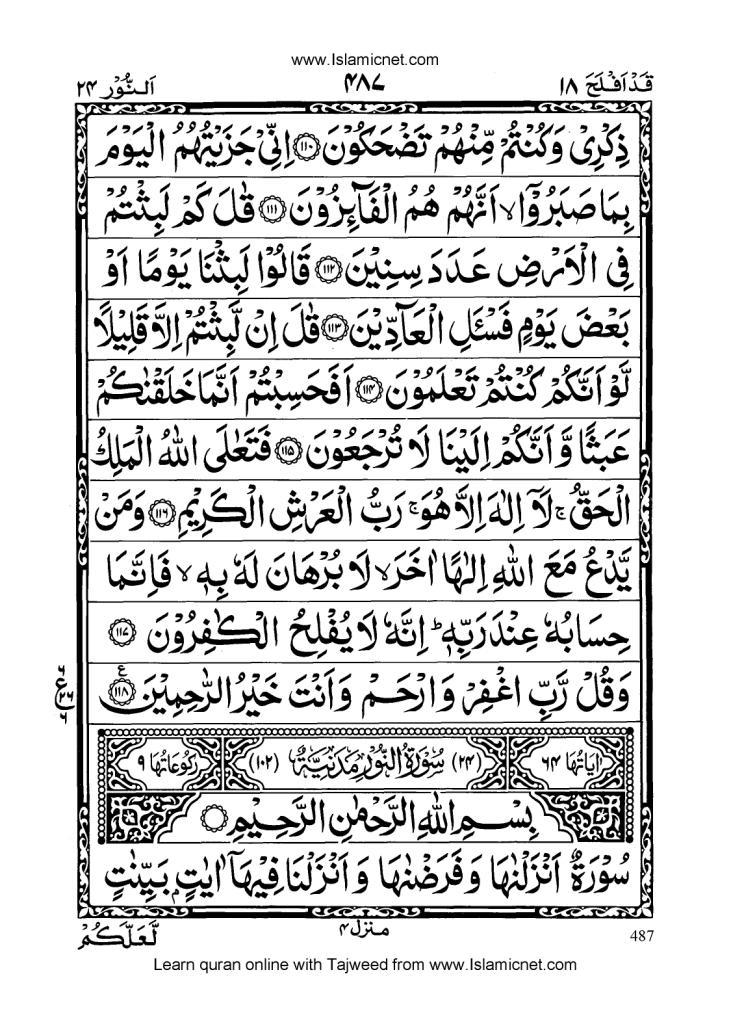 www.Islamicnet.com
قَدْ اَفْلَحَ ١٨
۴۸۷
اَلنُّوْر ۲۴
ذِكْرِیْ وَكُنْتُمْ مِّنْهُمْ تَضْحَكُوْنَ ﴿۱۱۰﴾ اِنِّیْ جَزَیْتُهُمُ الْیَوْمَ
بِمَا صَبَرُوْۤا ۙ اَنَّهُمْ هُمُ الْفَآىِٕزُوْنَ ﴿۱۱۱﴾ قٰلَ كَمْ لَبِثْتُمْ
فِی الْاَرْضِ عَدَدَ سِنِیْنَ ﴿۱۱۲﴾ قَالُوْا لَبِثْنَا یَوْمًا اَوْ
بَعْضَ یَوْمٍ فَسْـَٔلِ الْعَآدِّیْنَ ﴿۱۱۳﴾ قٰلَ اِنْ لَّبِثْتُمْ اِلَّا قَلِیْلًا
لَّوْ اَنَّكُمْ كُنْتُمْ تَعْلَمُوْنَ ﴿۱۱۴﴾ اَفَحَسِبْتُمْ اَنَّمَا خَلَقْنٰكُمْ
عَبَثًا وَّ اَنَّكُمْ اِلَیْنَا لَا تُرْجَعُوْنَ ﴿۱۱۵﴾ فَتَعٰلَی اللّٰهُ الْمَلِكُ
الْحَقُّ ۚ لَاۤ اِلٰهَ اِلَّا هُوَ ۚ رَبُّ الْعَرْشِ الْكَرِیْمِ ﴿۱۱۶﴾ وَمَنْ
یَّدْعُ مَعَ اللّٰهِ اِلٰهًا اٰخَرَ ۙ لَا بُرْهَانَ لَهٗ بِهٖ ۙ فَاِنَّمَا
حِسَابُهٗ عِنْدَ رَبِّهٖ ؕ اِنَّهٗ لَا یُفْلِحُ الْكٰفِرُوْنَ ﴿۱۱۷﴾
وَقُلْ رَّبِّ اغْفِرْ وَارْحَمْ وَاَنْتَ خَیْرُ الرّٰحِمِیْنَ ﴿۱۱۸﴾
۶ ع ۲۶ ۶
اٰیَاتُهَا ۶۴
(۲۴) سُوْرَةُ النُّوْرِ مَدَنِیَّةٌ (۱۰۲)
رُكُوْعَاتُهَا ۹
بِسْمِ اللّٰهِ الرَّحْمٰنِ الرَّحِیْمِ
سُوْرَةٌ اَنْزَلْنٰهَا وَفَرَضْنٰهَا وَاَنْزَلْنَا فِیْهَاۤ اٰیٰتٍۭ بَیِّنٰتٍ
لَّعَلَّكُمْ
منزل ۴
487
Learn quran online with Tajweed from www.Islamicnet.com